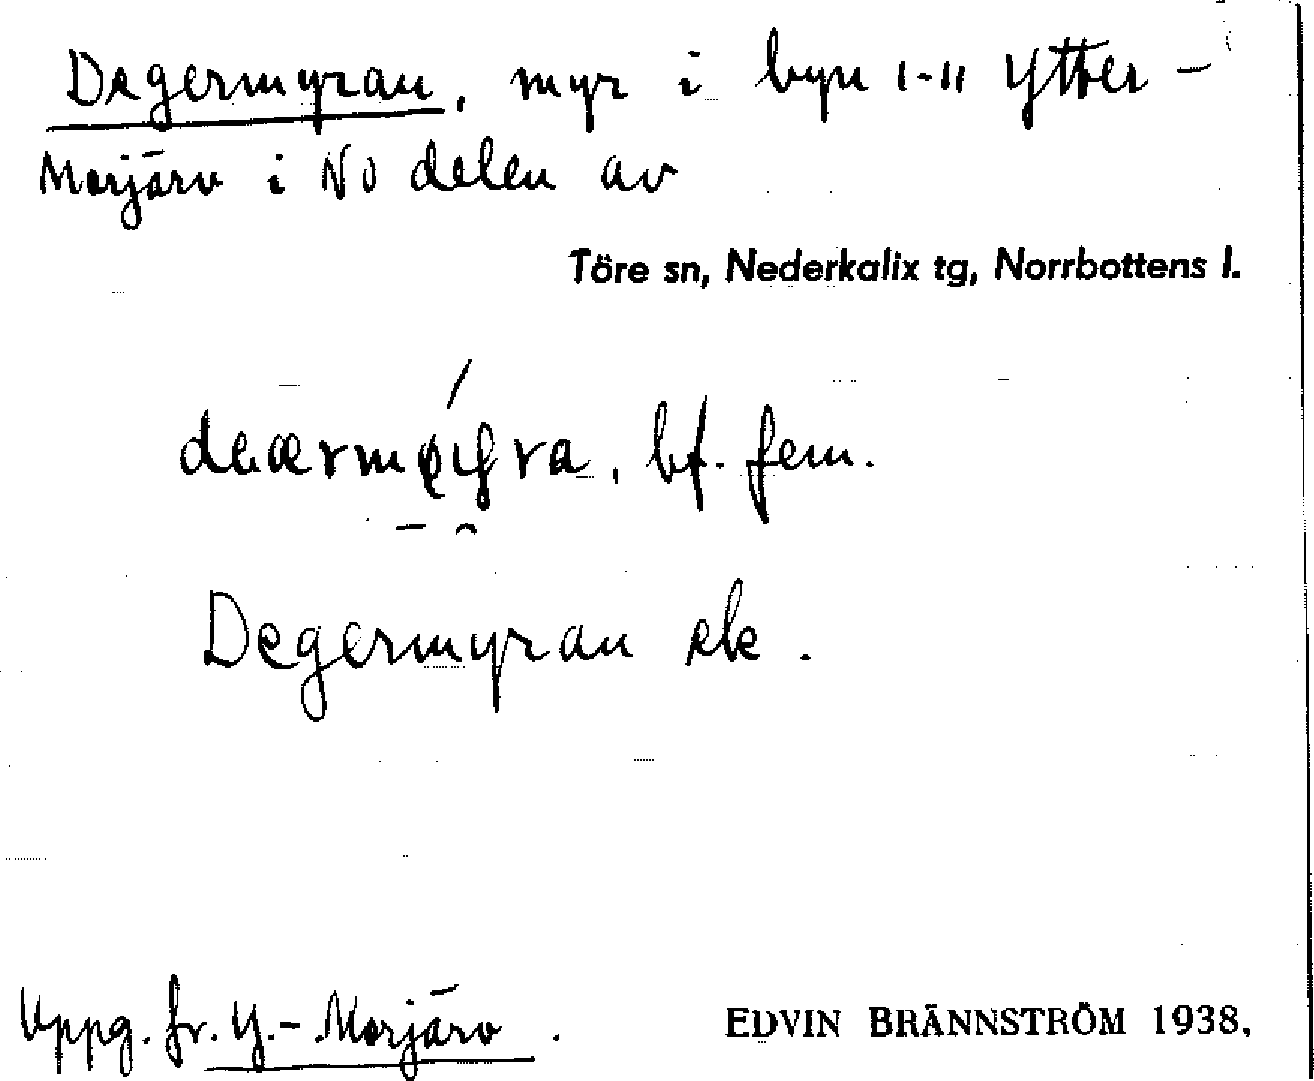 Degermyran, myr i byn 1-11 Ytter-
Morjärv i NO delen av
Töre sn, Nederkalix tg, Norrbottens l.
bf. fem.
Degermyran ek.
Uppg. fr. Y.-Morjärv.
EDVIN BRÄNNSTRÖM 1938,